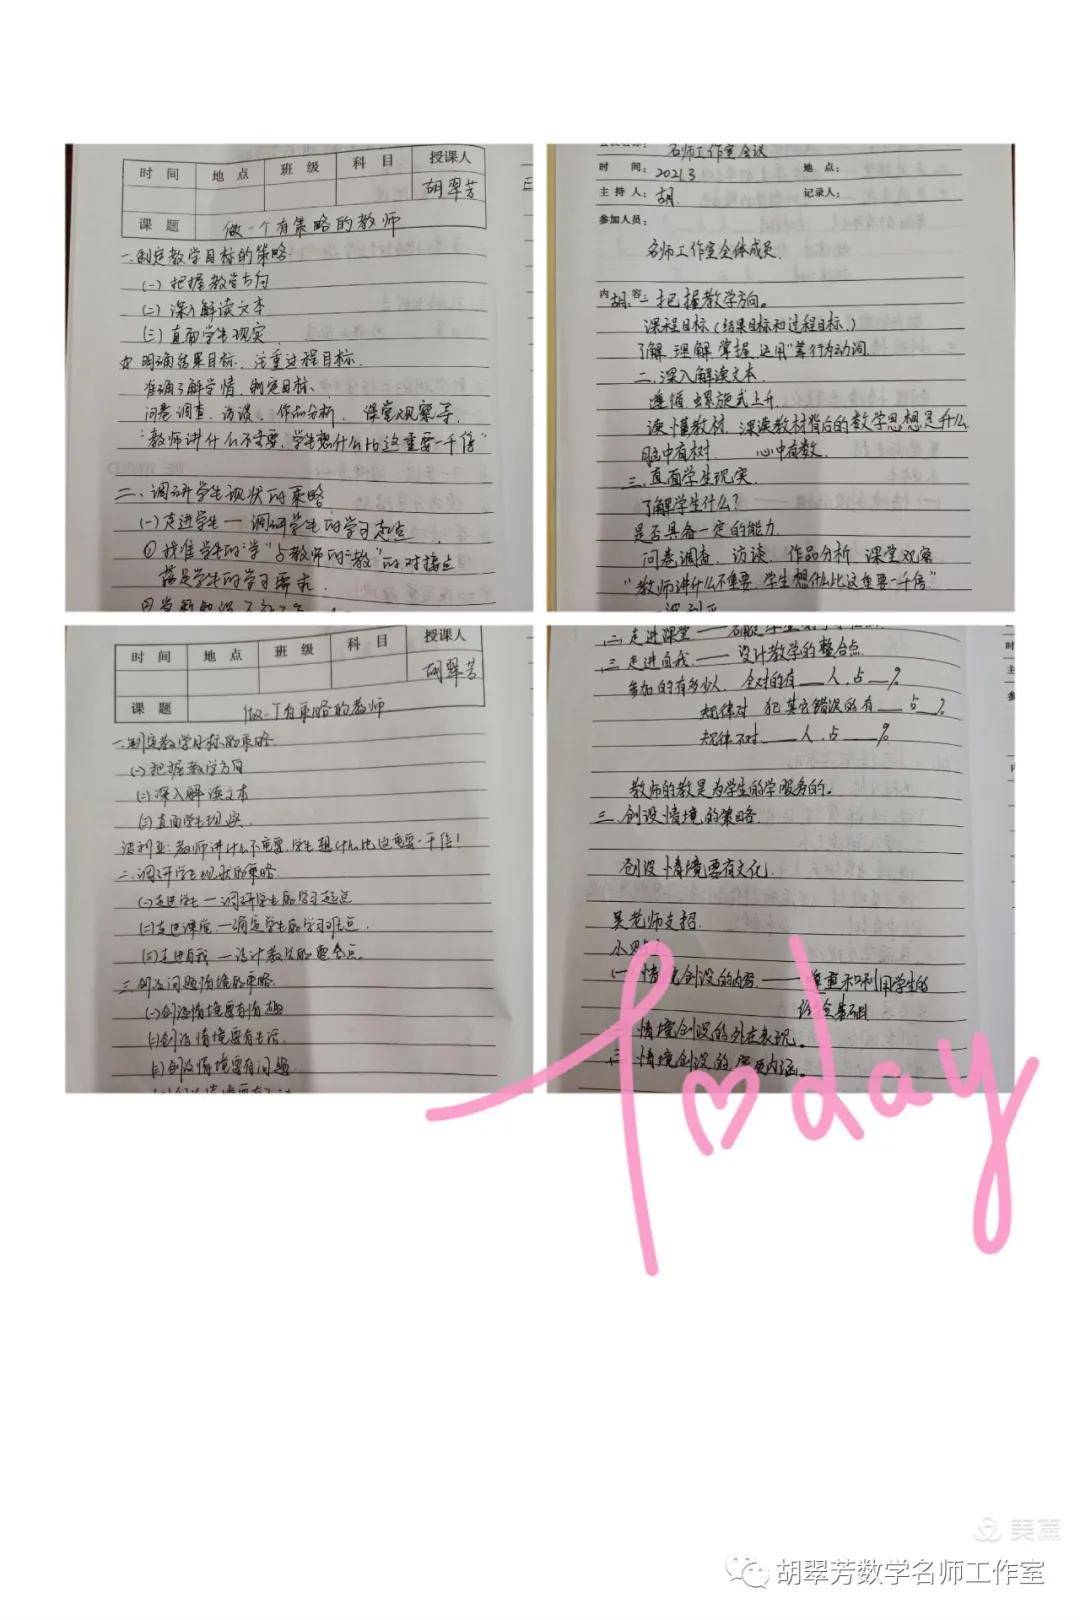 时 间 地 点 班 级 科 目 授课人
胡翠芳
课 题 做一个有策略的教师
一.制定教学目标的策略
(一)把握教学方向
(二)深入解读文本
(三)直面学生现实
明确结果目标、注重过程目标.
准确了解学情,制定目标、
问卷调查、访谈、作品分析、课堂观察等.
"教师讲什么不重要,学生想什么比这重要一千倍"
二、调研学生现状的策略
(一)走进学生——调研学生的学习起点
①找准学生的"学"与教师的"教"的对接点
名师工作室会议
时 间: 2021.3 地 点:
主 持 人: 胡. 记录人:
参加人员:
名师工作室全体成员.
内 容: 胡: 一 把握教学方向。
课程目标(结果目标和过程目标.)
了解 理解 掌握 运用"等行为动词
二.深入解读文本.
遵循 螺旋式上升.
读懂教材、深读教材背后的数学思想是什么
脑中有树. 心中有数.
三.直面学生现实.
了解学生什么?
是否具备一定的能力.
问卷调查、访谈、作品分析、课堂观察
"教师讲什么不重要,学生想什么比这重要一千倍"
时 间 地 点 班 级 科 目 授课人
胡翠芳
课 题 做一个有策略的教师
一.制定教学目标的策略
(一)把握教学方向
(二)深入解读文本
(三)直面学生现实.
波利亚:教师讲什么不重要,学生想什么比这重要一千倍!
二.调研学生现状的策略.
(一)走进学生—调研学生的学习起点
(二)走进课堂—确定学生的学习难点.
(三)走进自我—设计教学的整合点.
三.创设问题情境的策略.
(一)创设情境要有情趣
(二)创设情境要有生活.
(三)创设情境要有问题.
二.走进课堂——
三.走进自我.——设计教学的整合点.
参加的有多少人, 全对的有___人.占___%
规律对 犯其它错误的有___占___%
规律不对___人.占___%
教师的教是为学生的学服务的。
三.创设情境的策略.
创设情境要有文化.
吴老师支招.
(一)情境创设的内容——尊重和利用学生的
经验基础
二.情境创设的外在表现。
三.情境创设的 内涵。
Today
美篇
胡翠芳数学名师工作室